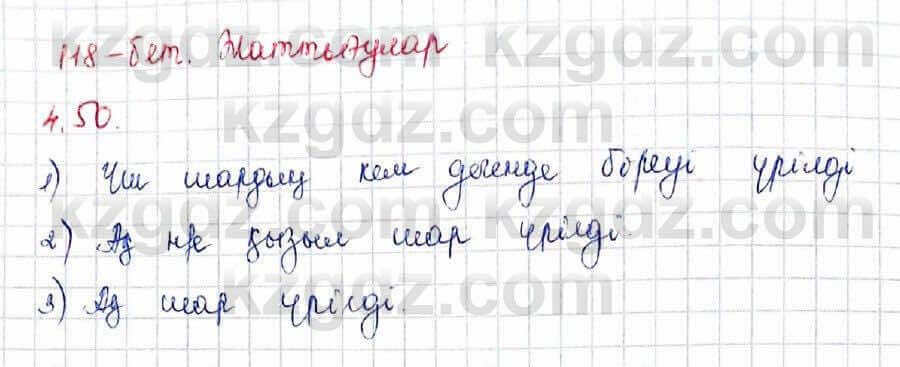 118-бет. Жаттығулар
4.50.
1) Үш шардың кем дегенде біреуі үрілді
2) Ақ н/е қызыл шар үрілді.
3) Ақ шар үрілді.
kzgdz.com kzgdz.com
kzgdz.com kzgdz.com
kzgdz.com kzgdz.com
kzgdz.com kzgdz.com